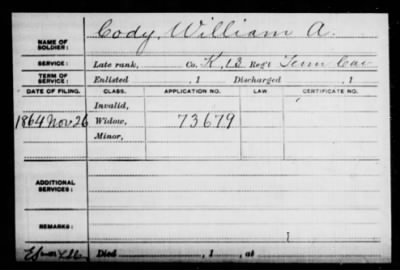 NAME OF SOLDIER: Cody, William A.
SERVICE: Late rank, Co. K, 13 Reg't Tenn Cav
TERM OF SERVICE: Enlisted , 1 Discharged , 1
DATE OF FILING. CLASS. APPLICATION NO. LAW CERTIFICATE NO.
Invalid,
1864 Nov 26 Widow, 73679
Minor,
ADDITIONAL SERVICES:
REMARKS:
Died , 1 , at